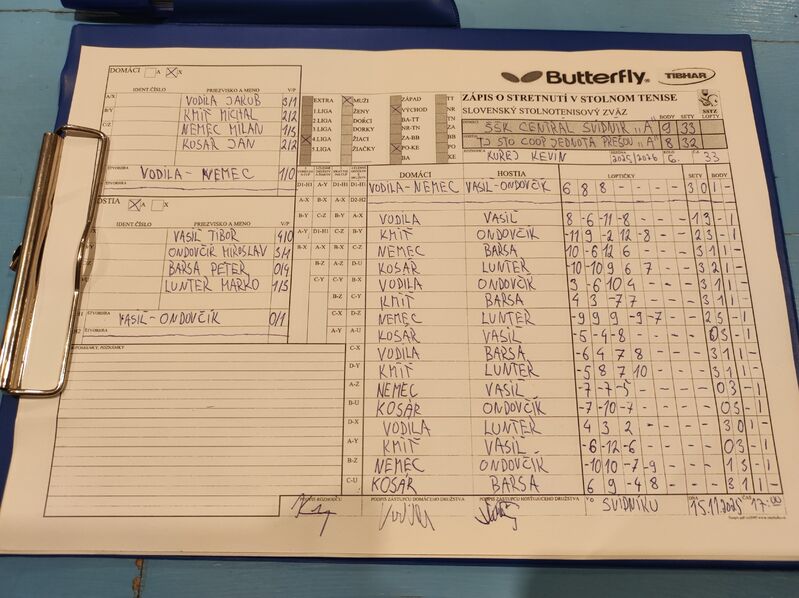 Butterfly
TIBHAR
ZÁPIS O STRETNUTÍ V STOLNOM TENISE
SLOVENSKÝ STOLNOTENISOVÝ ZVÄZ
SSTZ
BODY SETY LOPTY
ŠŠK CENTRAL SVIDNÍK "A" 9 33
TJ STO COOP JEDNOTA PREŠOV "A" 8 32
KUREJ KEVIN 2025/2026 6. 33
DOMÁCI A X
IDENT ČÍSLO PRIEZVISKO A MENO V/P
A/X VODILA JAKUB 3/1
B/Y KMIŤ MICHAL 2/2
NEMEC MILAN 1/3
KOSÁR JÁN 2/2
ŠTVORHRA VODILA-NEMEC 1/0
HOSTIA A X
IDENT ČÍSLO PRIEZVISKO A MENO V/P
VASIĽ TIBOR 4/0
ONDOVČÍK MIROSLAV 3/1
BARSA PETER 0/4
LUNTER MARKO 1/3
VASIĽ-ONDOVČÍK 0/1
EXTRA MUŽI ZÁPAD TT
1.LIGA ŽENY VÝCHOD NR
2.LIGA DORCI BA-TT TN
3.LIGA DORKY NR-TN ZA
4.LIGA ŽIACI ZA-BB BB
5.LIGA ŽIAČKY PO-KE PO
BA KE
DOMÁCI HOSTIA LOPTIČKY SETY BODY
VODILA-NEMEC VASIĽ-ONDOVČÍK 6 8 8 - - - - 3 0 1 -
VODILA VASIĽ 8 -6 -11 -8 - - - 1 3 - 1
KMIŤ ONDOVČÍK -11 9 -2 12 -8 - - 2 3 - 1
NEMEC BARSA 10 -6 12 6 - - - 3 1 1 -
KOSÁR LUNTER -10 -10 9 6 7 - - 3 2 1 -
VODILA ONDOVČÍK 3 -6 10 4 - - - 3 1 1 -
KMIŤ BARSA 4 3 -7 7 - - - 3 1 1 -
NEMEC LUNTER -9 9 9 -9 -7 - - 2 3 - 1
KOSÁR VASIĽ -5 -4 -8 - - - - 0 3 - 1
VODILA BARSA -6 4 7 8 - - - 3 1 1 -
KMIŤ LUNTER -5 8 7 10 - - - 3 1 1 -
NEMEC VASIĽ -7 -7 -5 - - - - 0 3 - 1
KOSÁR ONDOVČÍK -7 -10 -7 - - - - 0 3 - 1
VODILA LUNTER 4 3 2 - - - - 3 0 1 -
KMIŤ VASIĽ -6 -12 -6 - - - - 0 3 - 1
NEMEC ONDOVČÍK -10 10 -7 -9 - - - 1 3 - 1
KOSÁR BARSA 6 9 -4 8 - - - 3 1 1 -
PRIPOMIENKY, POZNÁMKY
PODPIS ROZHODCU PODPIS ZÁSTUPCU DOMÁCEHO DRUŽSTVA PODPIS ZÁSTUPCU HOSŤUJÚCEHO DRUŽSTVA
SVIDNÍKU DŇA 15.11.2025 ČAS 17:00